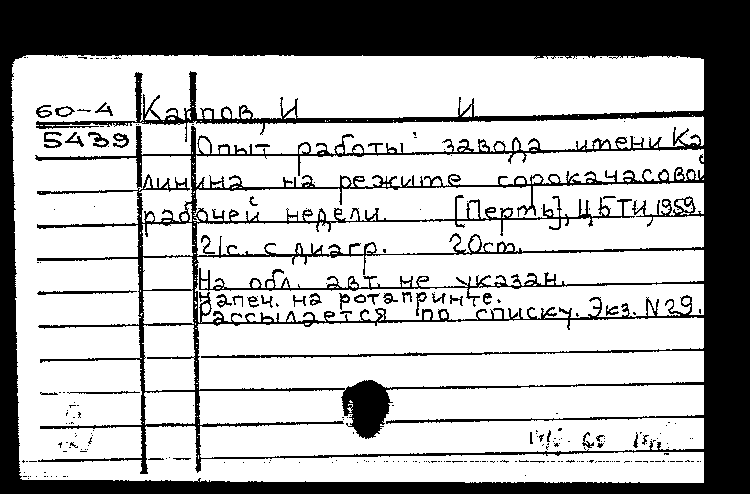 60-4 Карпов, И И
5439 Опыт работы завода имени Ка
линина на режиме сорокачасовой
рабочей недели. [Пермь], ЦБТИ, 1959.
21с. с диагр. 20см.
На обл. авт. не указан.
Напеч. на ротапринте.
Рассылается по списку. Экз. N29.
60